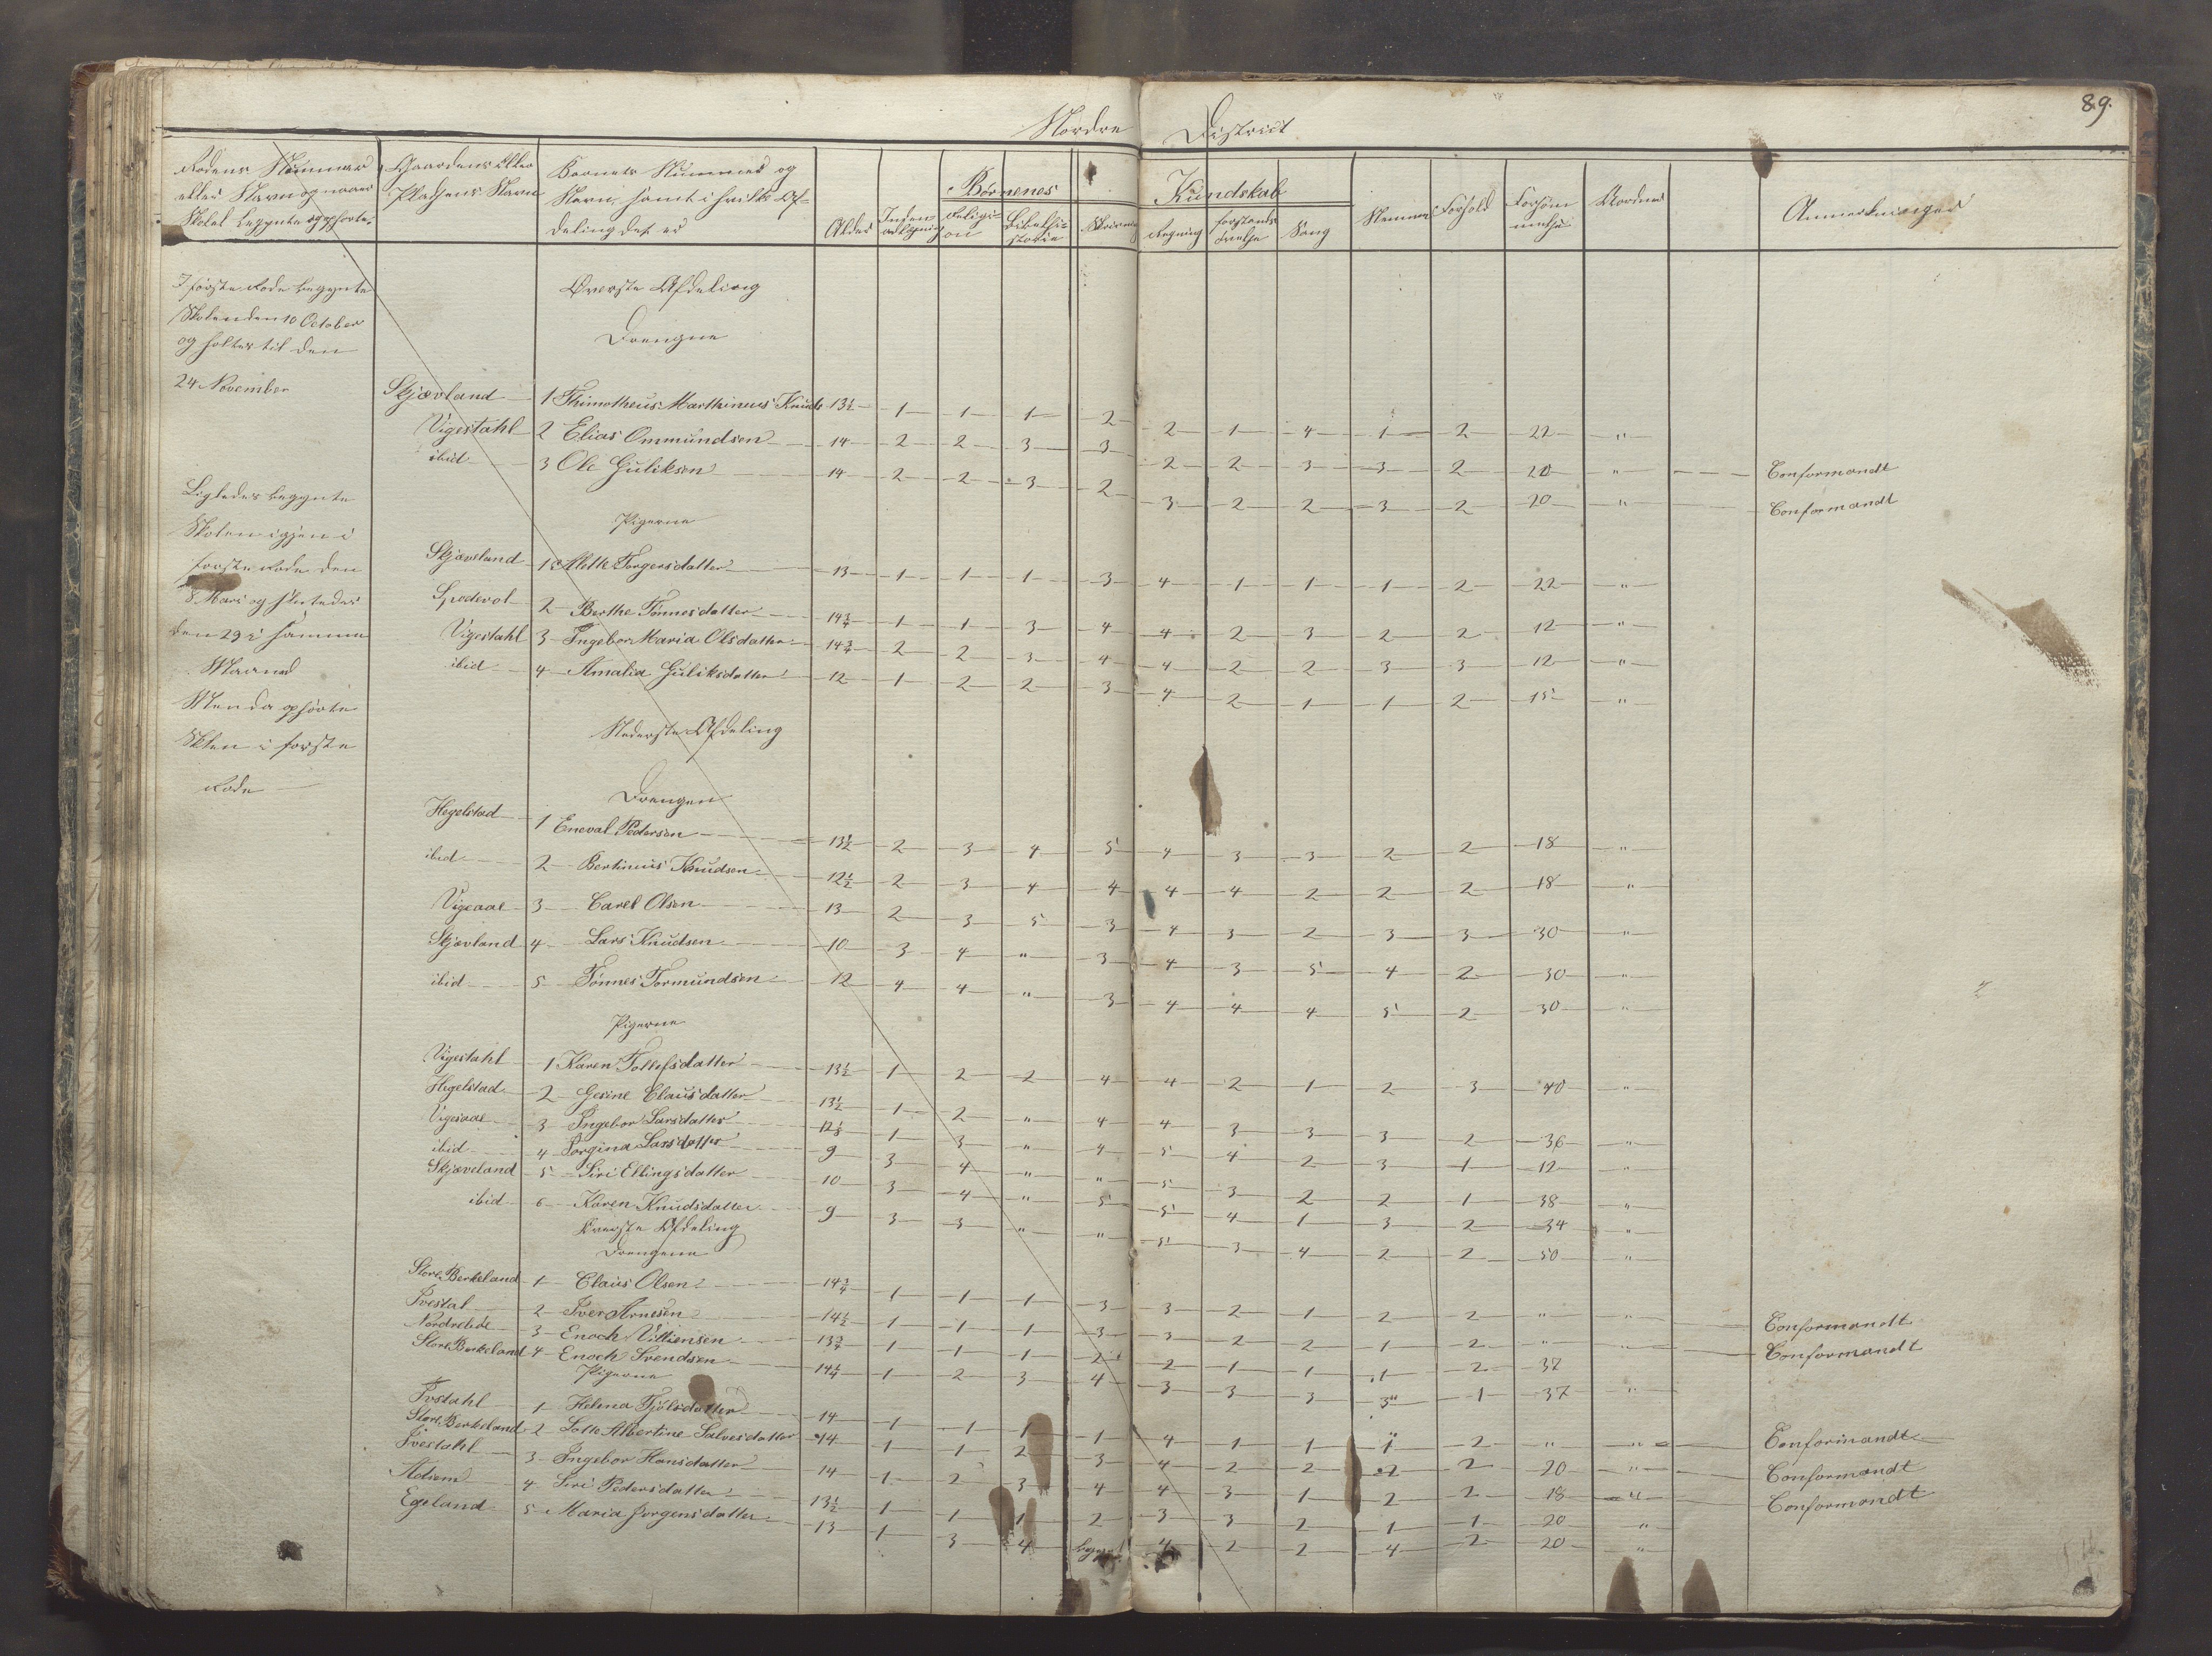 89.
Nordre District
Rodens Nummer eller Navn og naar Skolen begynte og ophørte.
Gaardens eller Pladsens Navn
Barnets Nummer og Navn, samt i hvilke Afdeling det er
Alder
Børnenes Kundskab
Religion
Bibelhistorie
Skrivning
Regning
Forstands øvelse
Sang
Nemme
Forhold
Forsømmelse
Anmerkninger
I første Rode begynte
Skolen den 10 October
og holtes til den
24 November
Øverste Afdeling
Drengne
Skjævland 1 Thimotheus Marthinus Knuds 13½ 1 1 1 2 2 1 4 1 2 22 "
Vigestahl 2 Elias Ommundsen 14 2 2 3 3 2 2 3 3 2 20 " Conformandt
ibid 3 Ole Guliksen 14 2 2 3 2 3 2 2 3 2 20 " Conformandt
Ligledes begynte
Skolen igjen i
første Rode den
8 Mars og sluttedes
den 29 i samme
Maaned
Men da ophørte
Sklen i første
Rode
Pigerne
Skjæveland 1 Mette Torgersdatter 13 1 1 1 3 4 1 1 1 2 22 "
2 Berthe Tønnesdatter 14¾ 1 1 3 4 4 2 3 2 2 12 "
Vigestahl 3 Ingebor Maria Olsdatter 14¾ 2 2 3 4 4 2 2 3 3 12 "
ibid 4 Amalia Guliksdatter 12 1 2 2 3 4 2 1 1 2 15 "
Nederste Afdeling
Drengen
Hegelstad 1 Eneval Pedersen 13½ 2 3 4 5 4 3 3 2 2 18 "
ibid 2 Bertinius Knudsen 12½ 2 3 4 4 4 4 2 2 2 18 "
Vigeaae 3 Carel Olsen 13 2 3 5 3 4 3 2 3 3 30 "
Skjævland 4 Lars Knudsen 10 3 4 " 3 4 3 5 4 2 30 "
ibid 5 Tønnes Tormundsen 12 4 4 " 3 4 4 4 5 2 30 "
Pigerne
Vigestahl 1 Karen Tollefsdatter 13½ 1 2 2 4 4 2 1 2 3 40 "
Hegelstad 2 Gesine Clausdatter 13½ 1 2 " 4 4 3 3 3 2 36 "
Vigeaae 3 Ingebor Larsdatter 1 3 " 4 5 4 2 3 1 12 "
ibid 4 Jorgina Larsdatter 9 3 4 " " 5 3 2 2 1 38 "
Skjæveland 5 Siri Ellingsdatter 10 3 4 " 5 5 4 1 3 2 34 "
ibid 6 Karen Knudsdatter 9 3 3 " " 5 3 4 2 2 50 "
Øverste Afdeling
Drengene
Store Berkeland 1 Claus Olsen 14¾ 1 1 1 3 3 2 1 2 2 " " Conformandt
Ivestal 2 Iver Arnesen 14½ 1 1 1 3 3 2 2 1 2 " " Conformandt
3 Enoch Villiensen 13¾ 1 1 1 2 2 1 1 1 2 37
Store Berkeland 4 Enoch Svendsen 14¼ 1 2 3 4 3 3 3 3 1 37 "
Pigerne
Ivstahl 1 Helena Tjølsdatter 14 1 1 1 1 4 1 1 1 2 " " Conformandt
Store Berkeland 2 Lotte Albertine Salvesdatter 14 1 1 2 3 4 2 2 2 2 20 " Conformandt
Ivestahl 3 Ingebor Hansdatter 14 1 2 3 4 4 3 1 2 2 18 " Conformandt
4 Siri Pedersdatter 13½ 1 1 1 2 3 3 2 1 1 20 "
Egeland 5 Maria Jorgensdatter 13 1 3 4 4 2 2 4 2 20 "